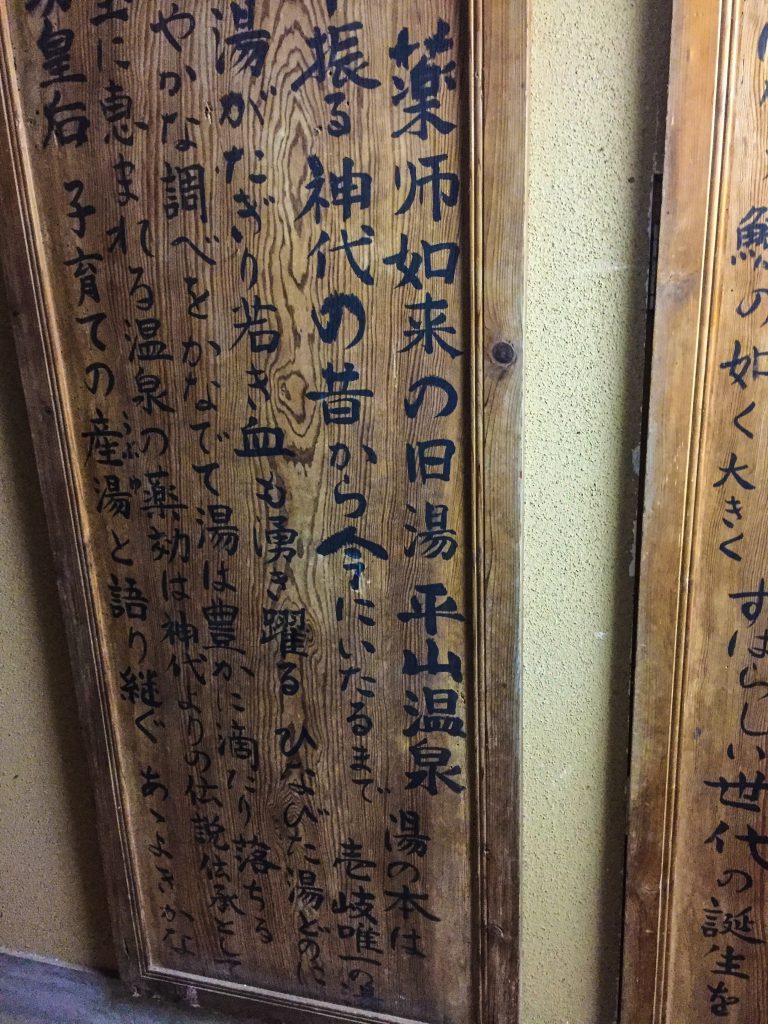 薬師如来の旧湯 平山温泉 湯の本は
振る 神代の昔から今にいたるまで 壱岐唯一の
湯がたぎり若き血も湧き躍る ひなびた湯どのに
やかな調べをかなでて湯は豊かに滴たり落ちる
に恵まれる温泉の薬効は神代よりの伝説伝承として
皇后 子育ての産湯と語り継ぐ あゝよきかな
うぶゆ
の如く大きく すばらしい世代の誕生を